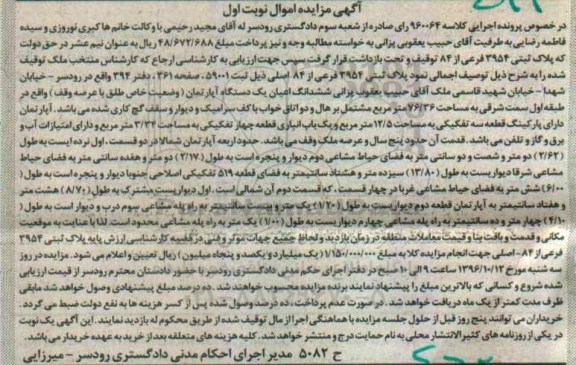 آگهی مزایده اموال نوبت اول
در خصوص پرونده اجرایی کلاسه ۹۶۰۰۶۴ رای صادره از شعبه سوم دادگستری رودسر له آقای مجید رحیمی با وکالت خانم ها کبری نوروزی و سیده
فاطمه رضایی به طرفیت آقای حبیب یعقوبی یزانی به خواسته مطالبه وجه و نیز پرداخت مبلغ ۴۸/۶۷۲/۶۸۸ ریال به عنوان نیم عشر در حق دولت
که پلاک ثبتی ۳۹۵۴ فرعی از ۸۴ توقیف و تحت بازداشت قرار گرفت سپس جهت ارزیابی به کارشناسی ارجاع که کارشناس منتخب ملک توقیف
شده را به شرح ذیل توصیف اجمالی نمود پلاک ثبتی ۳۹۵۴ فرعی از ۸۴ اصلی ذیل ثبت ۵۹۰۰۱، صفحه ۳۶۱، دفتر ۳۹۴ واقع در رودسر - خیابان
شهدا - خیابان شهید قاسمی ملک آقای حبیب یعقوبی یزانی ششدانگ اعیان یک دستگاه آپارتمان (وضعیت خاص طلق با عرصه وقف) واقع در
طبقه اول سمت شرقی به مساحت ۷۶/۳۶ متر مربع مشتمل بر هال و دو اتاق خواب با کف سرامیک و دیوار و سقف گچ کاری شده می باشد. آپارتمان
دارای پارکینگ قطعه سه تفکیکی به مساحت ۱۲/۵ متر مربع و یک باب انباری قطعه چهار تفکیکی به مساحت ۳/۳۲ متر مربع و دارای امتیازات آب و
برق و گاز و تلفن می باشد. قدمت آن حدود پنج سال و عرصه ملک وقف می باشد. حدود اربعه آپارتمان شمالا در دو قسمت، اول نرده ایست به طول
(۲/۶۲) دو متر و شصت و دو سانتی متر به فضای حیاط مشاعی دوم دیوار و پنجره است به طول (۲/۱۷) دو متر و هفده سانتی متر به فضای حیاط
مشاعی شرقا دیواریست به طول (۱۳/۸۰) سیزده متر و هشتاد سانتیمتر به فضای قطعه ۵۱۹ تفکیکی اصلاحی جنوبا دیوار و پنجره است به طول
(۶/۰۰) شش متر به فضای حیاط مشاعی غربا در چهار قسمت، که قسمت دوم آن شمالی است. اول دیواریست مشترک به طول (۸/۷۰) هشت متر
و هفتاد سانتیمتر به آپارتمان قطعه دوم دیواریست به طول (۱/۲۰) یک متر و بیست سانتیمتر به راه پله مشاعی سوم درب و دیوار است به طول
(۴/۱۰) چهار متر و ده سانتیمتر به راه پله مشاعی چهارم دیواریست به طول (۱/۰۰) یک متر به راه پله مشاعی محدود است. لذا با عنایت به موقعیت
مکانی و قدمت و بافت بنا و قیمت معاملات منطقه در زمان بازدید و لحاظ جمیع جهات موثر و فنی در قضیه کارشناسی ارزش پایه پلاک ثبتی ۳۹۵۴
فرعی از ۸۴ - اصلی جهت انجام مزایده کلا به مبلغ ۱/۱۵۰/۰۰۰/۰۰۰ (یک میلیارد و یکصد و پنجاه میلیون) ریال تعیین و اعلام می شود. مزایده در روز
سه شنبه مورخ ۱۳۹۶/۱۰/۱۲ از ساعت ۹ الی ۱۰ صبح در دفتر اجرای حکم مدنی دادگستری رودسر با حضور دادستان محترم رودسر از قیمت ارزیابی
شده شروع و کسانی که بالاترین مبلغ را پیشنهاد نمایند برنده مزایده محسوب خواهند شد. ده درصد مبلغ پیشنهادی وصول خواهد شد مابقی
ظرف مدت کمتر از یک ماه دریافت خواهد شد. در صورت عدم پرداخت، ده درصد وصول شده پس از کسر هزینه ها به نفع دولت ضبط می گردد.
خریداران می توانند پنج روز قبل از حلول جلسه مزایده با هماهنگی اجرا از مال توقیف شده از طریق محکوم له بازدید نمایند. این آگهی یک نوبت
در یکی از روزنامه های کثیرالانتشار محلی به نام حمایت درج و منتشر خواهد شد. کلیه هزینه های متعلقه بعد از خرید به عهده خریدار می باشد.
ح ۵۰۸۲ مدیر اجرای احکام مدنی دادگستری رودسر - میرزایی